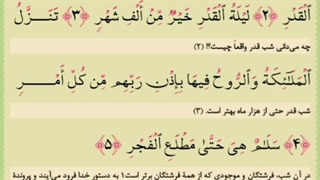 ٱلْقَدْرِ ﴿۲﴾ لَيْلَةُ ٱلْقَدْرِ خَيْرٌ مِّنْ أَلْفِ شَهْرٍ ﴿۳﴾ تَنَزَّلُ
چه می‌دانی شب قدر واقعاً چیست؟! (۲)
ٱلْمَلَٰٓئِكَةُ وَٱلرُّوحُ فِيهَا بِإِذْنِ رَبِّهِم مِّن كُلِّ أَمْرٍ
شب قدر حتی از هزار ماه بهتر است. (۳)
﴿۴﴾ سَلَٰمٌ هِىَ حَتَّىٰ مَطْلَعِ ٱلْفَجْرِ ﴿۵﴾
در آن شب، فرشتگان و موجودی که از همهٔ فرشتگان برتر است۱ به دستور خدا فرود می‌آیند و پروندهٔ